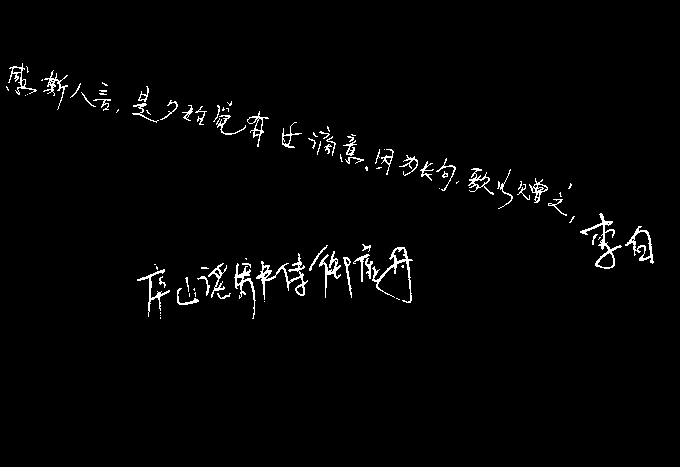 感斯人言，是夕始觉有迁谪意。因为长句，歌以赠之，
李白
庐山谣寄卢侍御虚舟